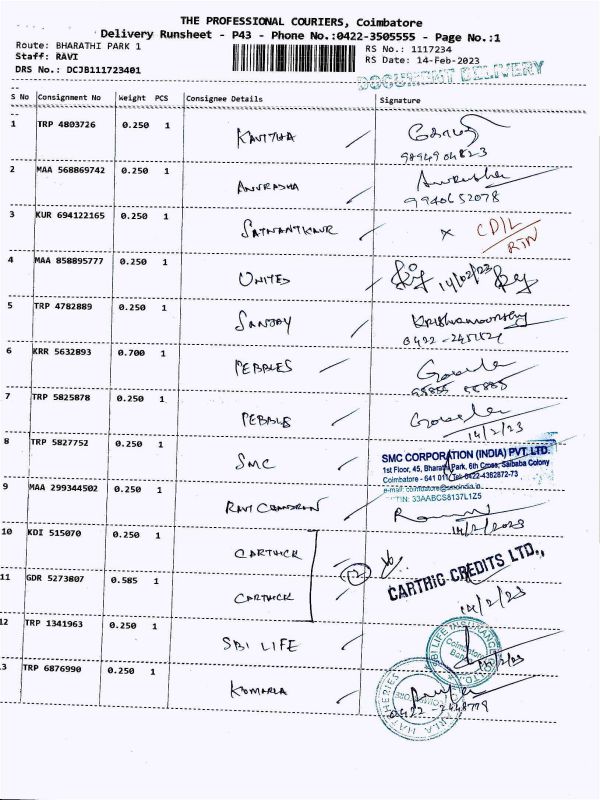 THE PROFESSIONAL COURIERS, Coimbatore
Delivery Runsheet - P43 - Phone No.:0422-3505555 - Page No.:1
Route: BHARATHI PARK 1
Staff: RAVI
DRS No.: DCJB111723401
RS No.: 1117234
RS Date: 14-Feb-2023
DOCUMENT DELIVERY
S No Consignment No Weight PCS Consignee Details Signature
1 TRP 4803726 0.250 1 KAVITHA
9894904823
2 MAA 568869742 0.250 1 ANURASHA
9940652078
3 KUR 694122165 0.250 1 SATNANTKAUR x CD/L
RTN
4 MAA 858895777 0.250 1 UNITED 14/02/23
5 TRP 4782889 0.250 1 SANJAY Krishnamoorthy
6 KRR 5632893 0.700 1 PEBBLES
7 TRP 5825878 0.250 1 PEBBLES
14/2/23
8 TRP 5827752 0.250 1 SMC
SMC CORPORATION (INDIA) PVT. LTD.
1st Floor, 45, Bharathi Park, 6th Cross, Saibaba Colony
Coimbatore - 641 011 Tel: 0422-4382872-73
e-mail: coimbatore@smcindia.in
33AABCS8137L1Z5
9 MAA 299344502 0.250 1 RAVI CHANDRAN
14/2/2023
10 KDI 515070 0.250 1 CARTHICK
CARTHIC CREDITS LTD.,
11 GDR 5273807 0.585 1 CARTHICK
14/2/23
12 TRP 1341963 0.250 1 SBI LIFE
SBI LIFE INSURANCE
Coimbatore
14/2/23
13 TRP 6876990 0.250 1 KOMARLA
HATCHERIES